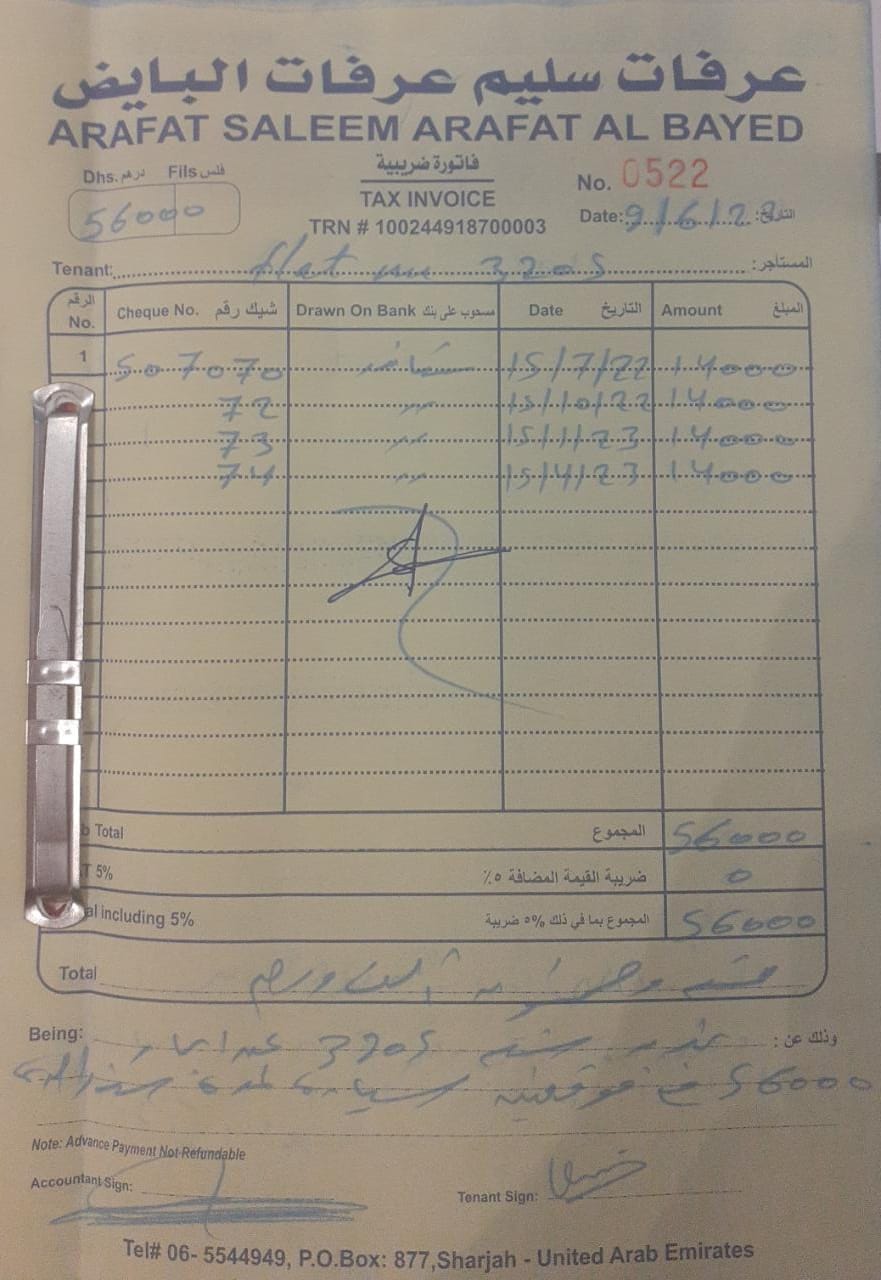 عرفات سليم عرفات البايض
ARAFAT SALEEM ARAFAT AL BAYED
Dhs. درهم Fils فلس
56000
فاتورة ضريبية
TAX INVOICE
TRN # 100244918700003
No. 0522
Date: 9/6/22 التاريخ:
Tenant: flat 3205 المستأجر:
الرقم No. Cheque No. شيك رقم Drawn On Bank مسحوب على بنك Date التاريخ Amount المبلغ
1 507070 15/7/22 14000
72 15/10/22 14000
73 15/1/23 14000
74 15/4/23 14000
b Total المجموع 56000
T 5% ضريبة القيمة المضافة ٥٪ 0
al including 5% المجموع بما في ذلك 5% ضريبة 56000
Total ستة وخمسون ألف درهم
Being: 3205 وذلك عن:
56000
Note: Advance Payment Not Refundable
Accountant Sign:
Tenant Sign:
Tel# 06- 5544949, P.O.Box: 877,Sharjah - United Arab Emirates